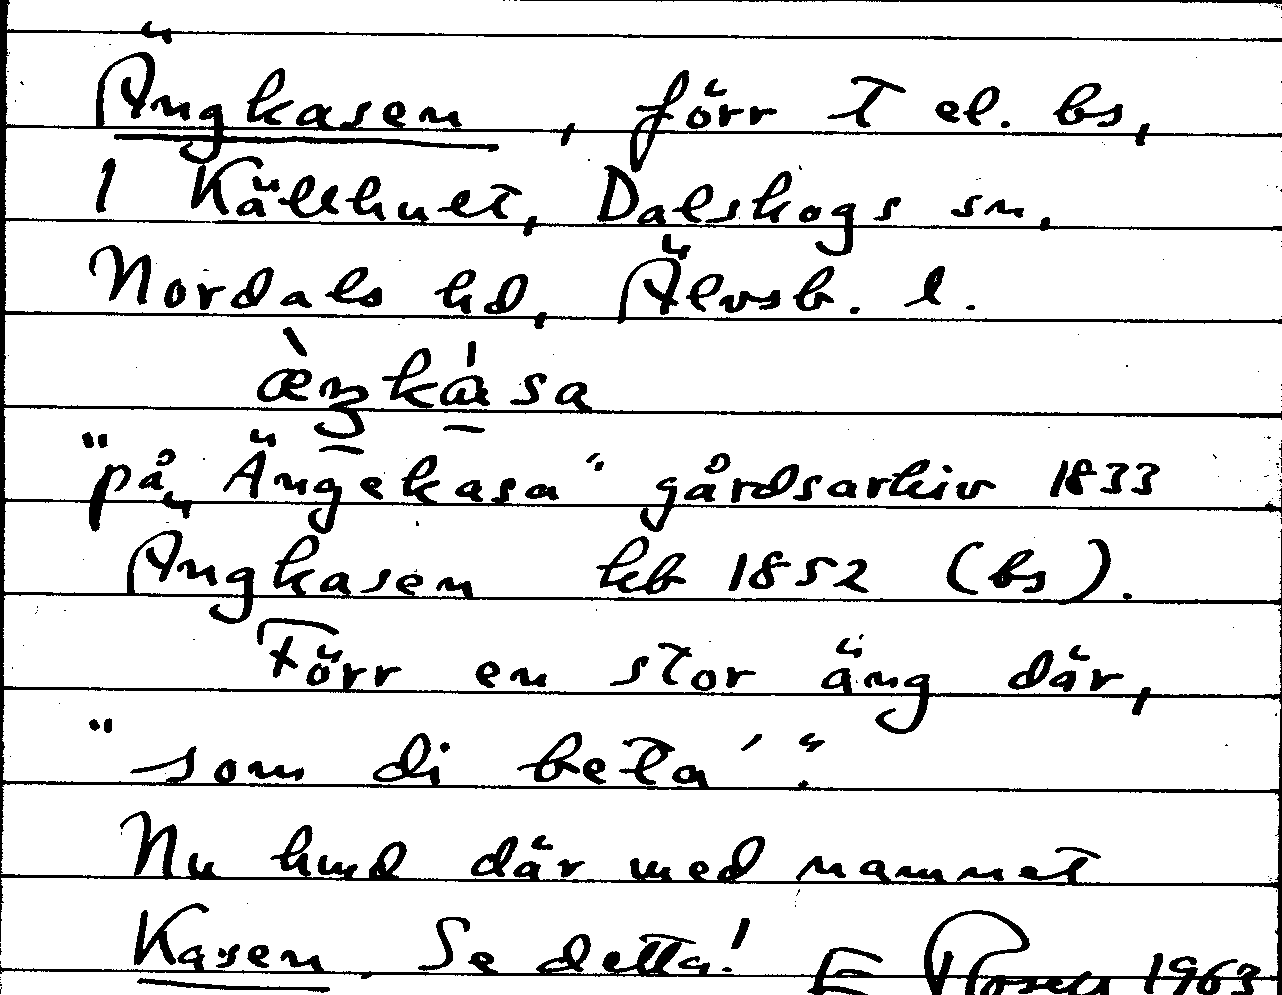 Ängkasen, förr T el. bs,
1 Källhult, Dalskogs sn,
Nordals hd, Älvsb. l.
"på Ängekasa" gårdsarkiv 1833
Ängkasen hb 1852 (bs).
Förr en stor äng där,
"som di beta'".
Nu hmd där med namnet
Kasen. Se detta! E 1963